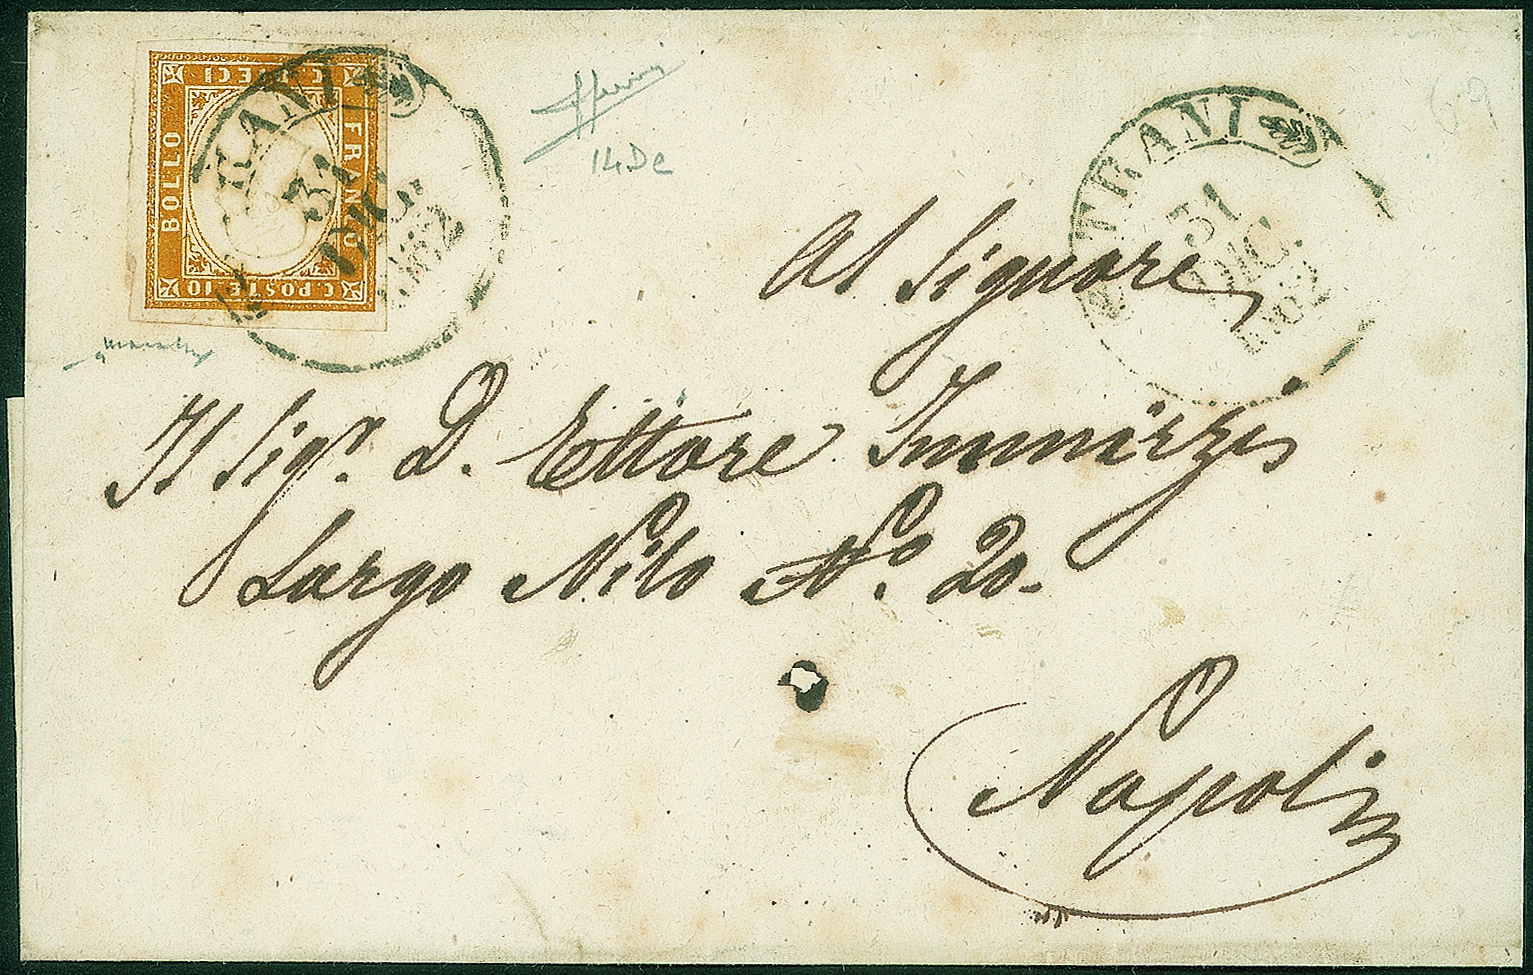 C. DIECI
BOLLO
FRANCO
C. POSTE 10
TRANI
31
DIC.
1862
14Dc
TRANI
31
DIC.
1862
69
Al Signore
Il Sigr. D. Ettore
Largo Nilo No. 20.
Napoli